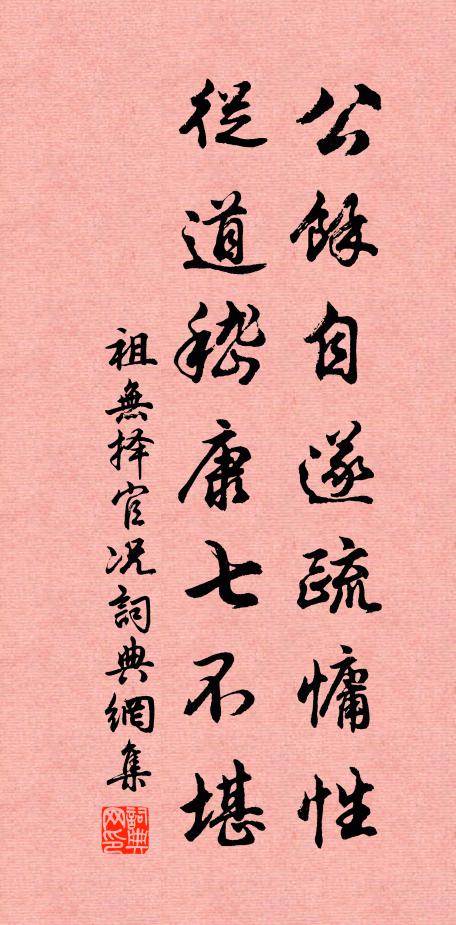 公餘自遂疏慵性
從道嵇康七不堪
祖無择官况詞典網集
詞典网印